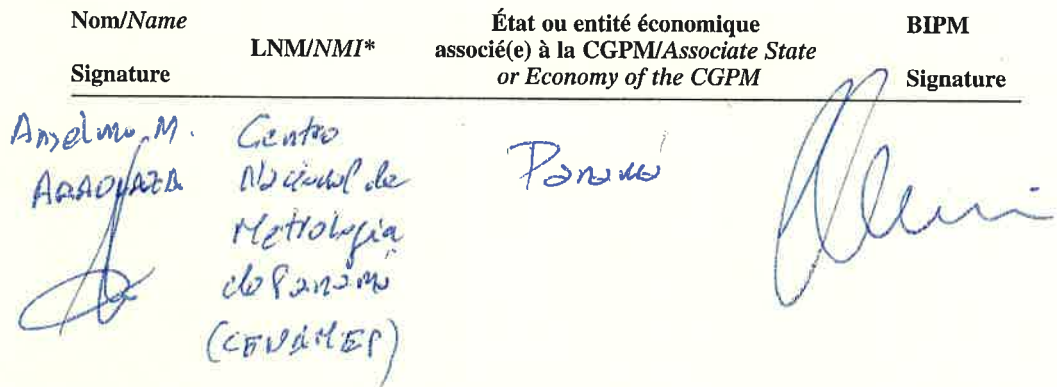 Nom/Name
Signature
LNM/NMI*
État ou entité économique
associé(e) à la CGPM/Associate State
or Economy of the CGPM
BIPM
Signature
Anselmo M.
Centro
Nacional de
Metrología
de Panamá
(CENAMEP)
Panamá